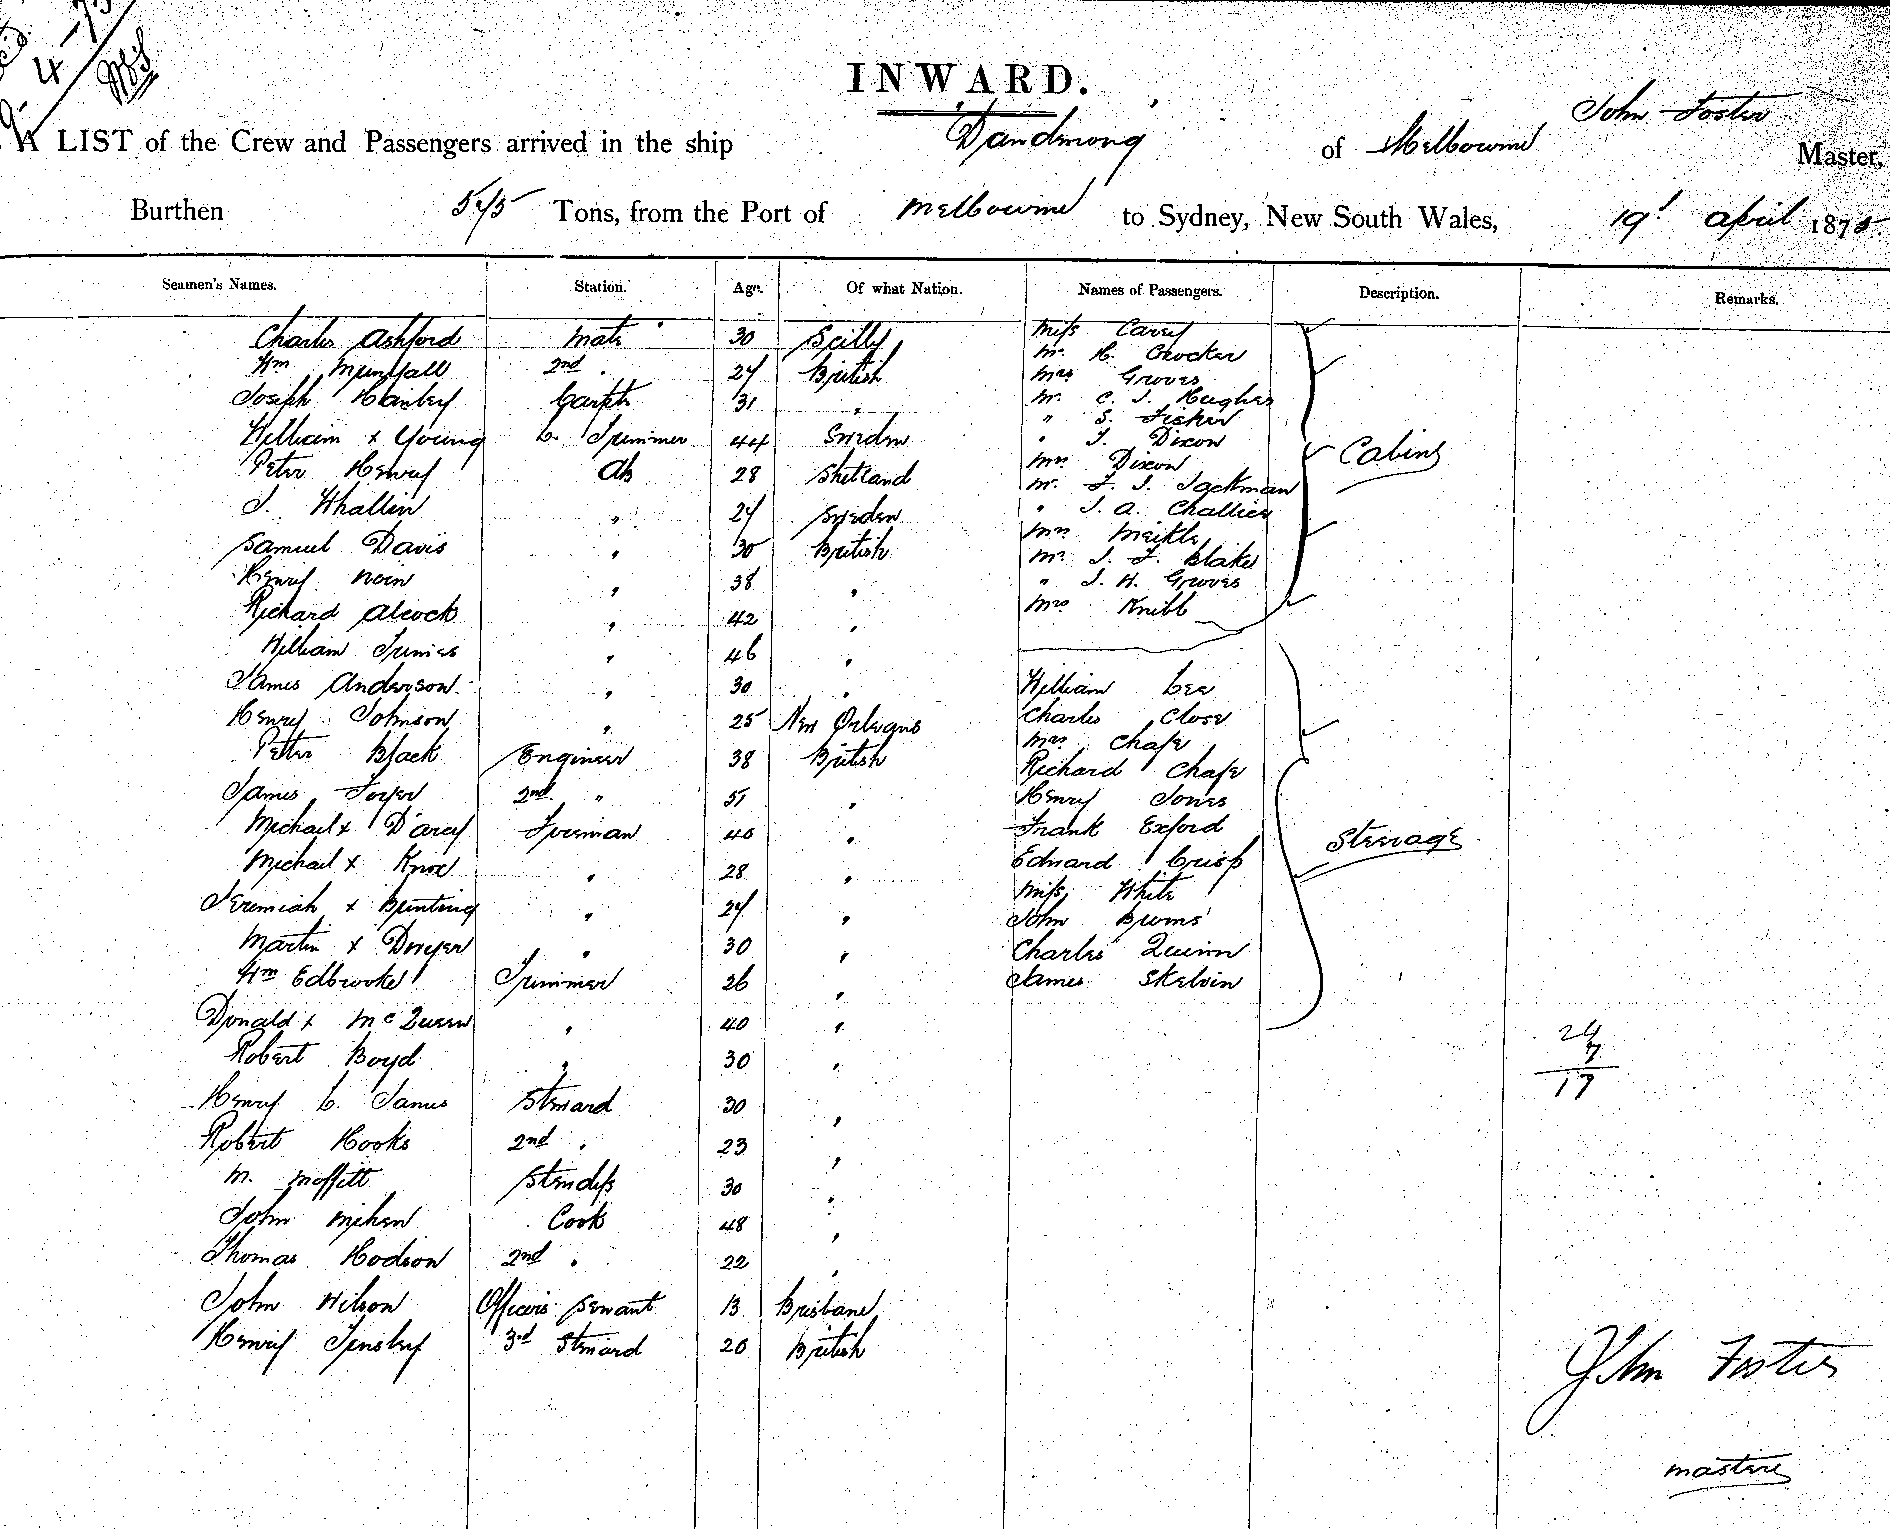 INWARD.
John Foster
A LIST of the Crew and Passengers arrived in the ship Dandenong of Melbourne Master,
Burthen Tons, from the Port of Melbourne to Sydney, New South Wales, 19 April 1875
Seamen's Names. Station. Age. Of what Nation. Names of Passengers. Description. Remarks.
Charles Ashford Mate 30 Scilly
Wm 2nd " 24 British
Joseph Hanley 31 "
William x Young L. Trimmer 44 Sweden
Peter Henry AB 28 Shetland
J. Whallin " 24 Sweden
Samuel Davis " 30 British
Henry " 38 "
Richard Alcock " 42 "
William " 46 "
James Anderson " 30 "
Henry Johnson " 25 New Orleans
Peter Black Engineer 38 British
James 2nd " 51 "
Michael x D'arcy Foreman 40 "
Michael x Knox " 28 "
Jeremiah x Bunting " 24 "
Martin x Dwyer " 30 "
Wm Edbrooke Trimmer 26 "
Donald x McQueen " 40 "
Robert Boyd " 30 "
Henry L. James Steward 30 "
Robert Hooks 2nd " 23 "
M. Moffitt Stewdss 30 "
John Cook 48 "
Thomas Hodson 2nd " 22 "
John Wilson Officers Servant 13 Brisbane
Henry Tinsley 3rd Steward 20 British
Miss Carey
Mr. H. Crocker
Mrs Groves
Mr. C. J. Hughes
" S. Fisher
" J. Dixon
Mrs Dixon
Mr. F. J. Jackman
" J. A. Challice
Mrs Meikle
Mr J. F. Blake
" J. H. Groves
Mrs Knibb
Cabins
William Lee
Charles Close
Mrs Chafe
Richard Chafe
Henry Jones
Frank Exford
Edward Crisp
Miss White
John Burns
Charles Quinn
James Skelvin
Steerage
24
7
17
John Foster
master